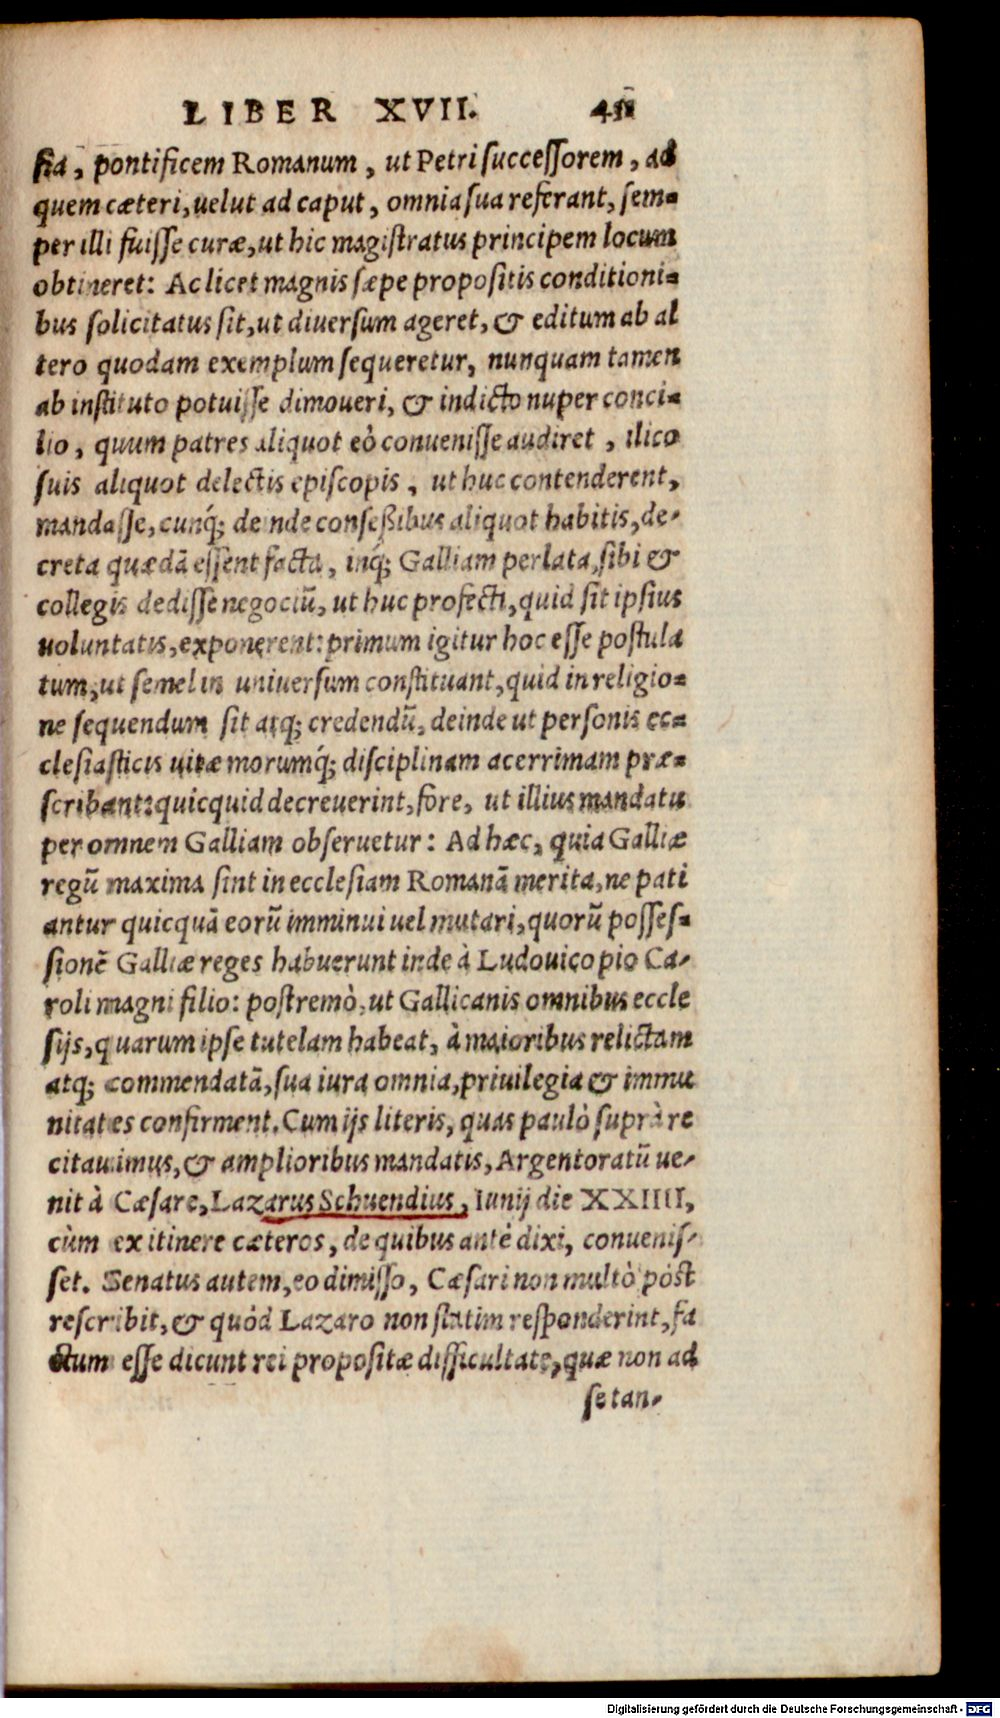 LIBER XVII. 411
sia, pontificem Romanum, ut Petri successorem, ad
quem cæteri, uelut ad caput, omnia sua referant, sem-
per illi fuisse curæ, ut hic magistratus principem locum
obtineret: Ac licet magnis sæpe propositis conditioni-
bus solicitatus sit, ut diuersum ageret, & editum ab al
tero quodam exemplum sequeretur, nunquam tamen
ab instituto potuisse dimoueri, & indicto nuper conci-
lio, quum patres aliquot eò conuenisse audiret, ilico
suis aliquot delectis episcopis, ut huc contenderent,
mandasse, cunq́; deinde conseßibus aliquot habitis, de-
creta quædā essent facta, inq́; Galliam perlata, sibi &
collegis dedisse negociū, ut huc profecti, quid sit ipsius
uoluntatis, exponerent: primum igitur hoc esse postula
tum, ut semel in uniuersum constituant, quid in religio-
ne sequendum sit atq; credendū, deinde ut personis ec-
clesiasticis uitæ morumq́; disciplinam acerrimam præ-
scribant: quicquid decreuerint, fore, ut illius mandatu
per omnem Galliam obseruetur: Ad hæc, quia Galliæ
regū maxima sint in ecclesiam Romanā merita, ne pati
antur quicquā eorū imminui uel mutari, quorū posses-
sionē Galliæ reges habuerunt inde à Ludouico pio Ca-
roli magni filio: postremò, ut Gallicanis omnibus eccle
sijs, quarum ipse tutelam habeat, à maioribus relictam
atq; commendatā, sua iura omnia, priuilegia & immu
nitates confirment. Cum ijs literis, quas paulò suprà re
citauimus, & amplioribus mandatis, Argentoratū ue-
nit à Cæsare, Lazarus Schuendius, Iunij die XXIIII,
cùm ex itinere cæteros, de quibus antè dixi, conuenis-
set. Senatus autem, eo dimisso, Cæsari non multò pòst
rescribit, & quòd Lazaro non statim responderint, fa
ctum esse dicunt rei propositæ difficultate, quæ non ad
se tan-
Digitalisierung gefördert durch die Deutsche Forschungsgemeinschaft - DFG